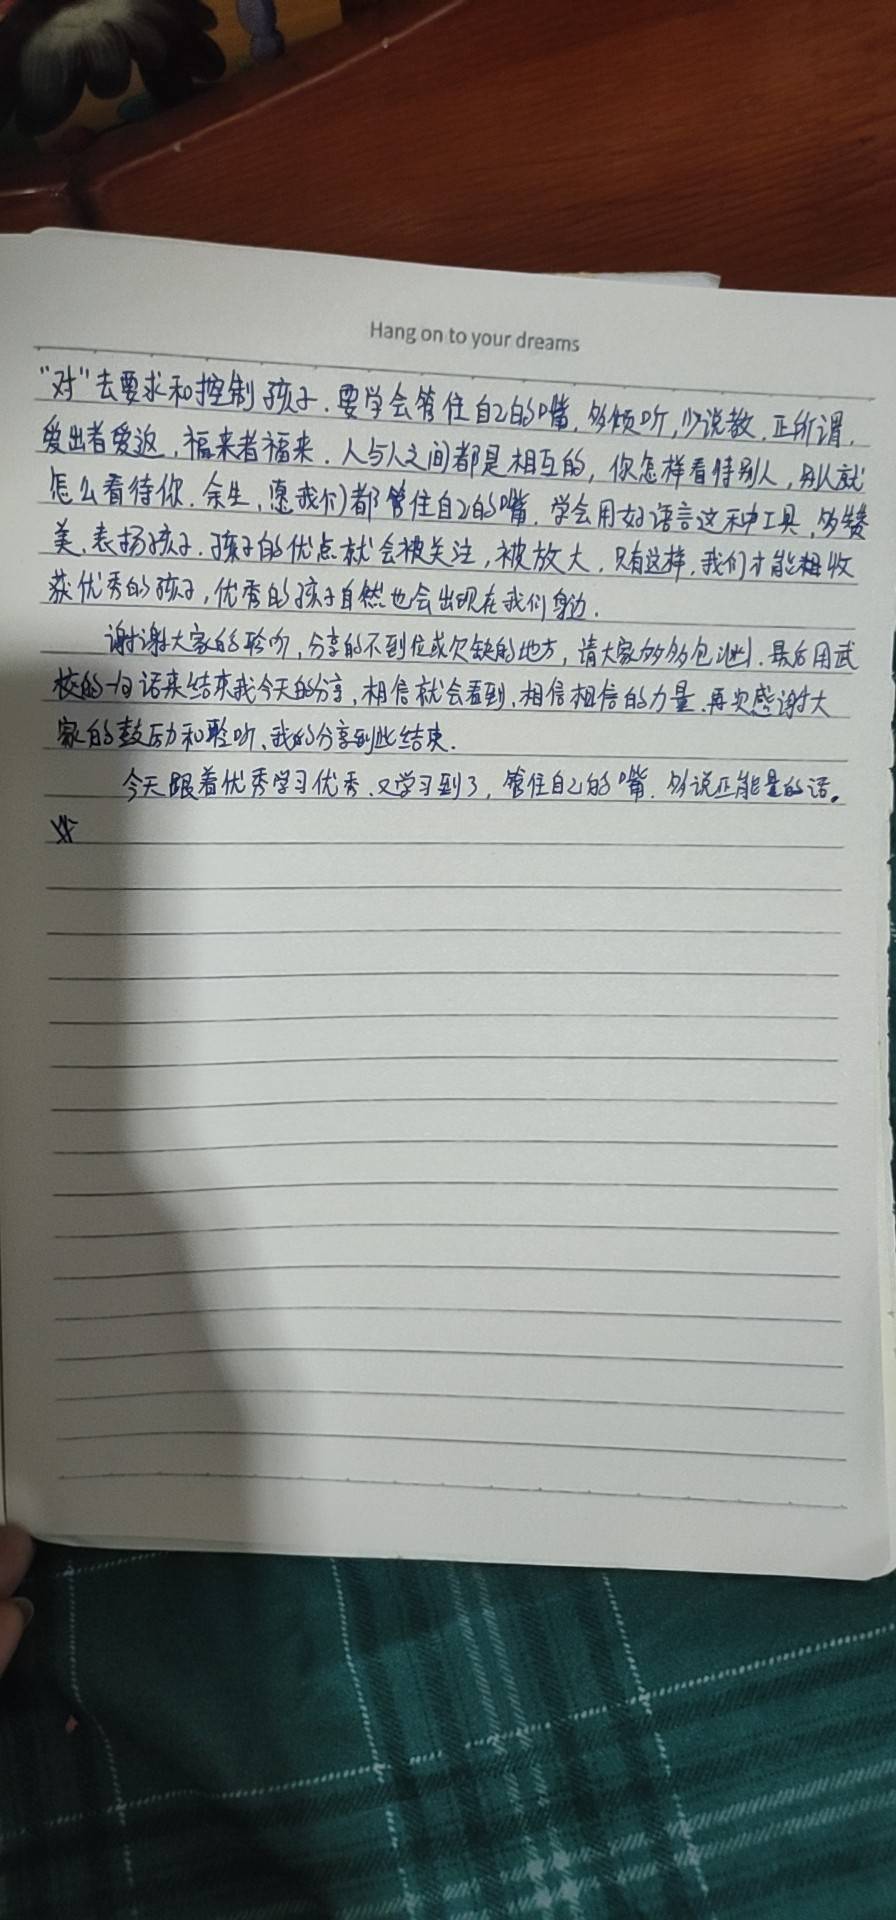 Hang on to your dreams
“对”去要求和控制孩子.要学会管住自己的嘴,多倾听,少说教,正所谓,
爱出者爱返,福来者福来.人与人之间都是相互的,你怎样看待别人,别人就
怎么看待你.余生,愿我们都管住自己的嘴.学会用好语言这种工具,多赞
美,表扬孩子.孩子的优点就会被关注,被放大,只有这样,我们才能收
获优秀的孩子,优秀的孩子自然也会出现在我们身边.
谢谢大家的聆听,分享的不到位或欠缺的地方,请大家多多包涵.最后用武
校的一句话来结束我今天的分享,相信就会看到,相信相信的力量.再次感谢大
家的鼓励和聆听,我的分享到此结束.
今天跟着优秀学习优秀.又学习到了,管住自己的嘴.多说正能量的话。